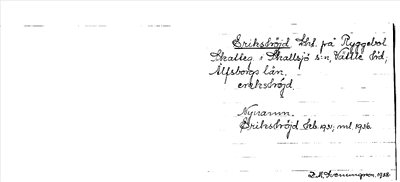 Erikshöjd Lht. på Ryggebol
Skatteg. i Skallsjö s:n, Vättle hd,
Älfsborgs län.
erekshöjd.
Nynamn.
Erikshöjd Leb. 1931, ml. 1936.
1938